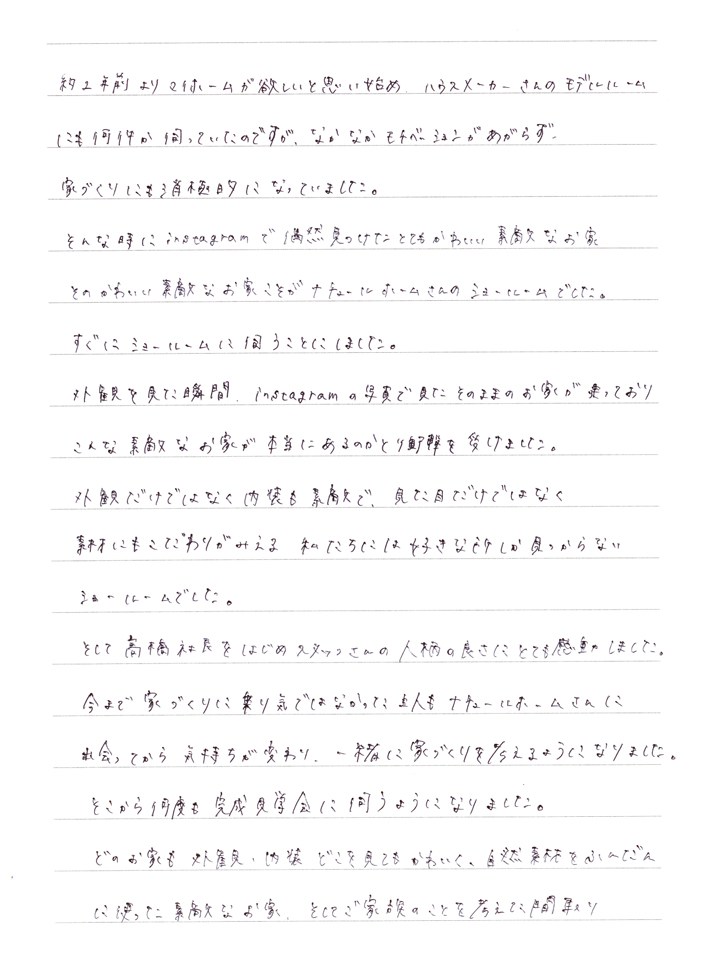 約2年前よりマイホームが欲しいと思い始め、ハウスメーカーさんのモデルルーム
にも何件か伺っていたのですが、なかなかモチベーションがあがらず、
家づくりにも消極的になっていました。
そんな時にinstagramで偶然見つけたとてもかわいい素敵なお家
そのかわいい素敵なお家こそがナチュールホームさんのショールームでした。
すぐにショールームに伺うことにしました。
外観を見た瞬間、instagramの写真で見たそのままのお家が建っており
こんな素敵なお家が本当にあるのかと衝撃を受けました。
外観だけではなく内装も素敵で、見た目だけではなく
素材にもこだわりがみえる 私たちには好きな所しか見つからない
ショールームでした。
そして高橋社長をはじめスタッフさんの人柄の良さにとても感動しました。
今まで家づくりに乗り気ではなかった主人もナチュールホームさんに
出会ってから気持ちが変わり、一緒に家づくりを考えるようになりました。
そこから何度も完成見学会に伺うようになりました。
どのお家も外観・内装どこを見てもかわいく、自然素材をふんだん
に使った素敵なお家、そしてご家族のことを考えた間取り